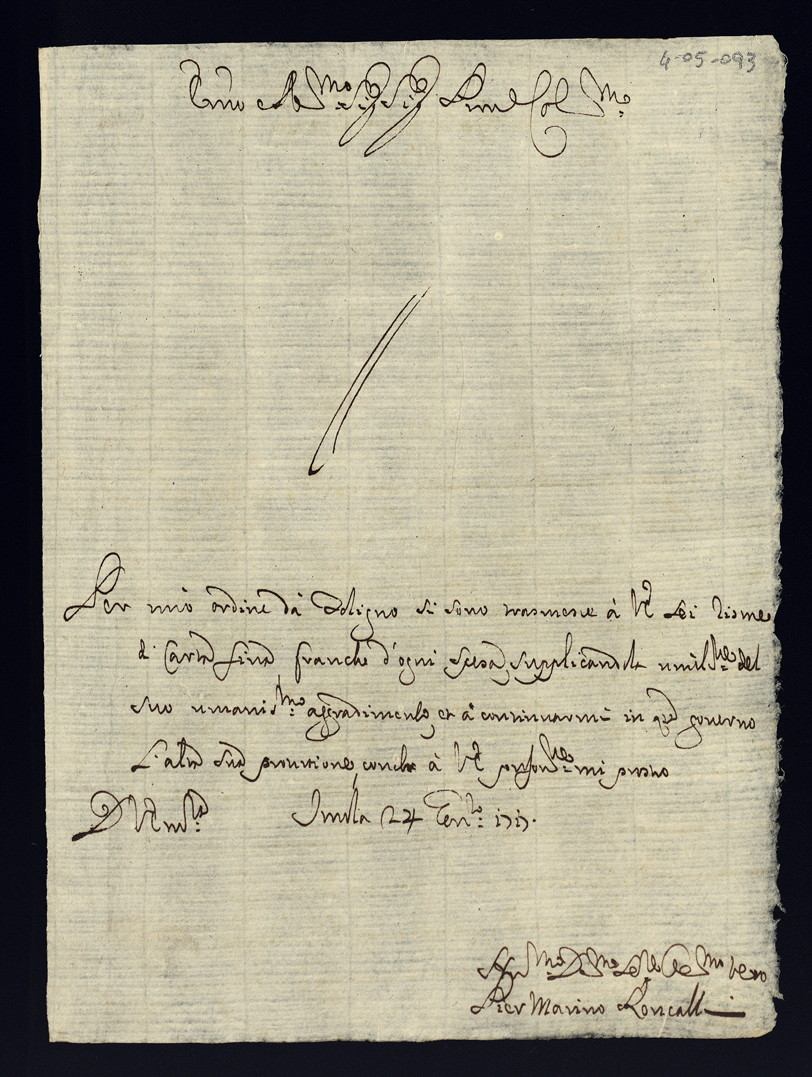 4-05-093
Sig.r Sig.r P.rone Col.mo
Per mio ordine da Foligno si sono trasmesse à V.E. sei risme
di Carta fina, franche d'ogni spesa, supplicandola umilm.e del
suo umaniss.mo aggradimento, et à continuarmi in q.to governo
l'alta sua protettione, con che à V.E. prof.e mi
D V.E. Imola 24 Gen.ro 1717.
Pier Marino Roncalli